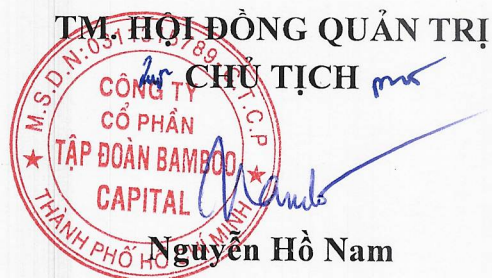 TM. HỘI ĐỒNG QUẢN TRỊ
CHỦ TỊCH
CÔNG TY
CỔ PHẦN
TẬP ĐOÀN BAMBOO
CAPITAL
THÀNH PHỐ HỒ CHÍ MINH
Nguyễn Hồ Nam